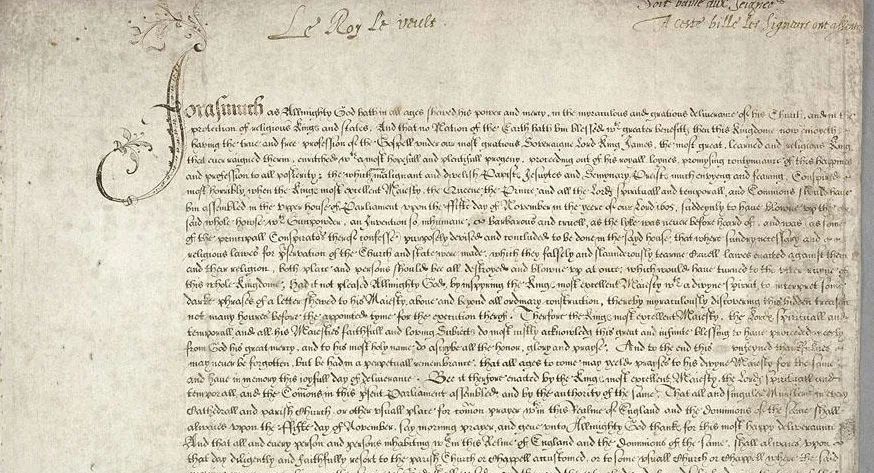 Soit baille aux Seigne
Le Roy le veult.
A ceste bille les Signeurs ont assent
Forasmuch as Allmighty God hath in all ages shewed his power and mercy, in the myraculous and gratious deliverance of his Church, and in the
protection of religious Kings and states, And that no Nation of the Earth hath bin blessed wth greater benefitts then this Kingdome now enioyeth
having the true and free profession of the Gospell under our most gratious Soveraigne Lord King James, the most great, learned and religious King
that ever raigned therin, enritched wth a most hopefull and plentifull progeny, proceeding out of his royall loynes, promysing contynuance of this happines
and profession to all posterity; the which malignant and divelish Papists, Jesuytes and Semynary Preists much envyeng and fearing, Conspired
most horribly, when the Kings most excellent Maiesty, the Queene the Prince and all the Lords spirituall and temporall, and Commons should have
bin assembled in the upper house of Parliament upon the fifte day of November in the yeere of our Lord 1605, suddeynly to have blowne up the
said whole howse wth Gunpowder, an Invention so inhumane, barbarous and cruell, as the lyke was never before heard of, and was as some
of the principall Conspirators therof confesse purposely devised and concluded to be done in the sayd house, that where sundry necessary and
religious lawes for pservation of the Church and state were made, which they falsely and slaunderously tearme Cruell lawes enacted against them
and their religion, both place and persons should bee all destroyed and blowne up at once, which would have turned to the utter ruyne of
this whole Kingdome, Had it not pleased Allmighty God, by inspyring the Kings most excellent Maiesty wth a divyne spirit, to interpret some
darke phrases of a letter shewed to his Maiesty, above and beyond all ordinary construction, thereby myraculously discovering this hidden treason
not many howres before the appointed tyme for the execution therof. Therfore the Kings most excellent Maiesty, the Lords spirituall and
temporall and all his Maiesties faithfull and loving Subiects do most iustly acknowledg this great and infinite blessing to have proceeded meerly
from God his great mercy, and to his most holy name do ascrybe all the honor, glory and prayse. And to the end this unfeyned thankfulnes
may never be forgotten, but be had in a perpetuall remembrance, that all ages to come may yeeld prayses to his divyne Maiesty for the same
and have in memory this ioyfull day of deliverance. Bee it therfore enacted by the Kings most excellent Maiesty, the Lords spirituall and
temporall, and the Comons in this psent Parliament assembled and by the authority of the same, That all and singuler Ministers in every
Cathedrall and parish Church, or other usuall place for comon prayer wthin this Realme of England and the dominions of the same shall
allwaies upon the fifte day of November, say morning prayer, and geve unto Allmighty God thanks for this most happy deliveraunce
And that all and every person and persons inhabiting wthin this Realme of England and the dominions of the same, shall allwaies upon
that day diligently and faithfully resort to the parish Church or Chappell accustomed, or to some usuall Church or Chappell where the said